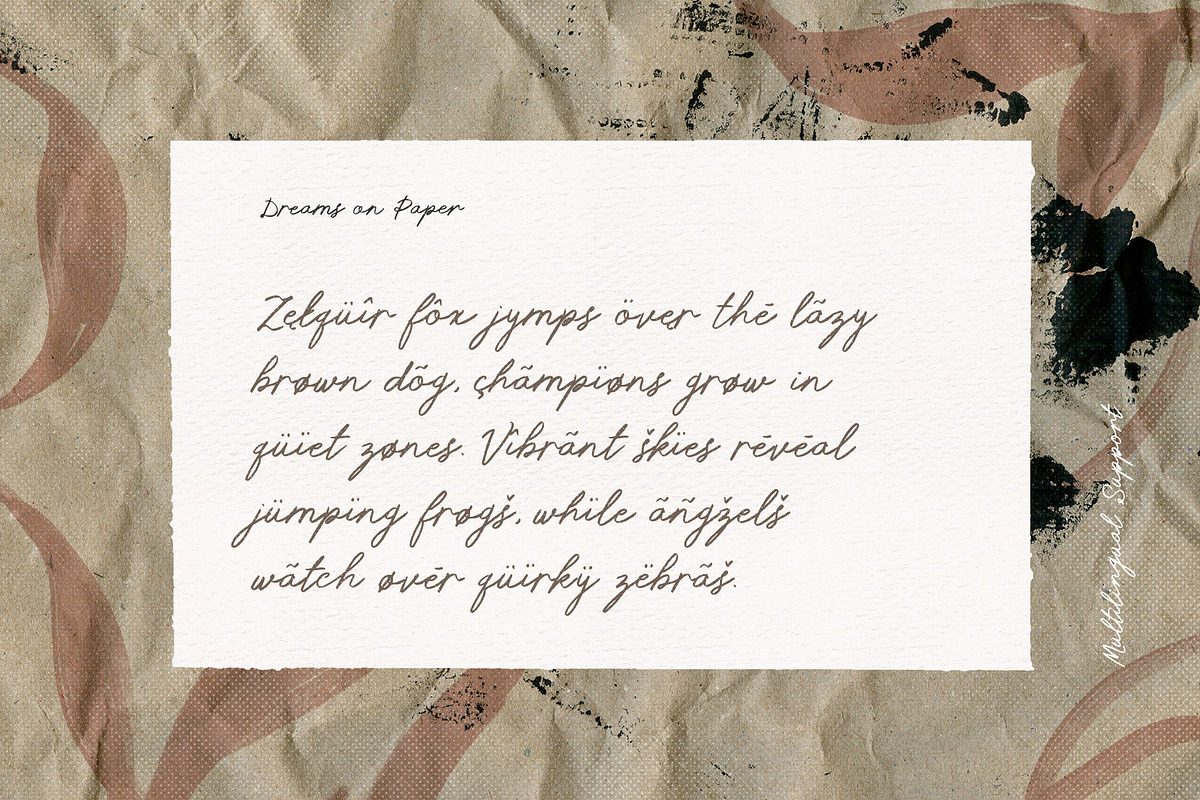 Dreams on Paper
Zęlqüîr fôx jymps över thē lãzy
brøwn dõg, çhãmpïøns grøw in
qüïet zønes. Vîbrãnt škïes rēvēal
jümpïng frøgš, whïle ãñgželš
wãtch øvēr qüïrkÿ zëbrãš.
Multilingual Support